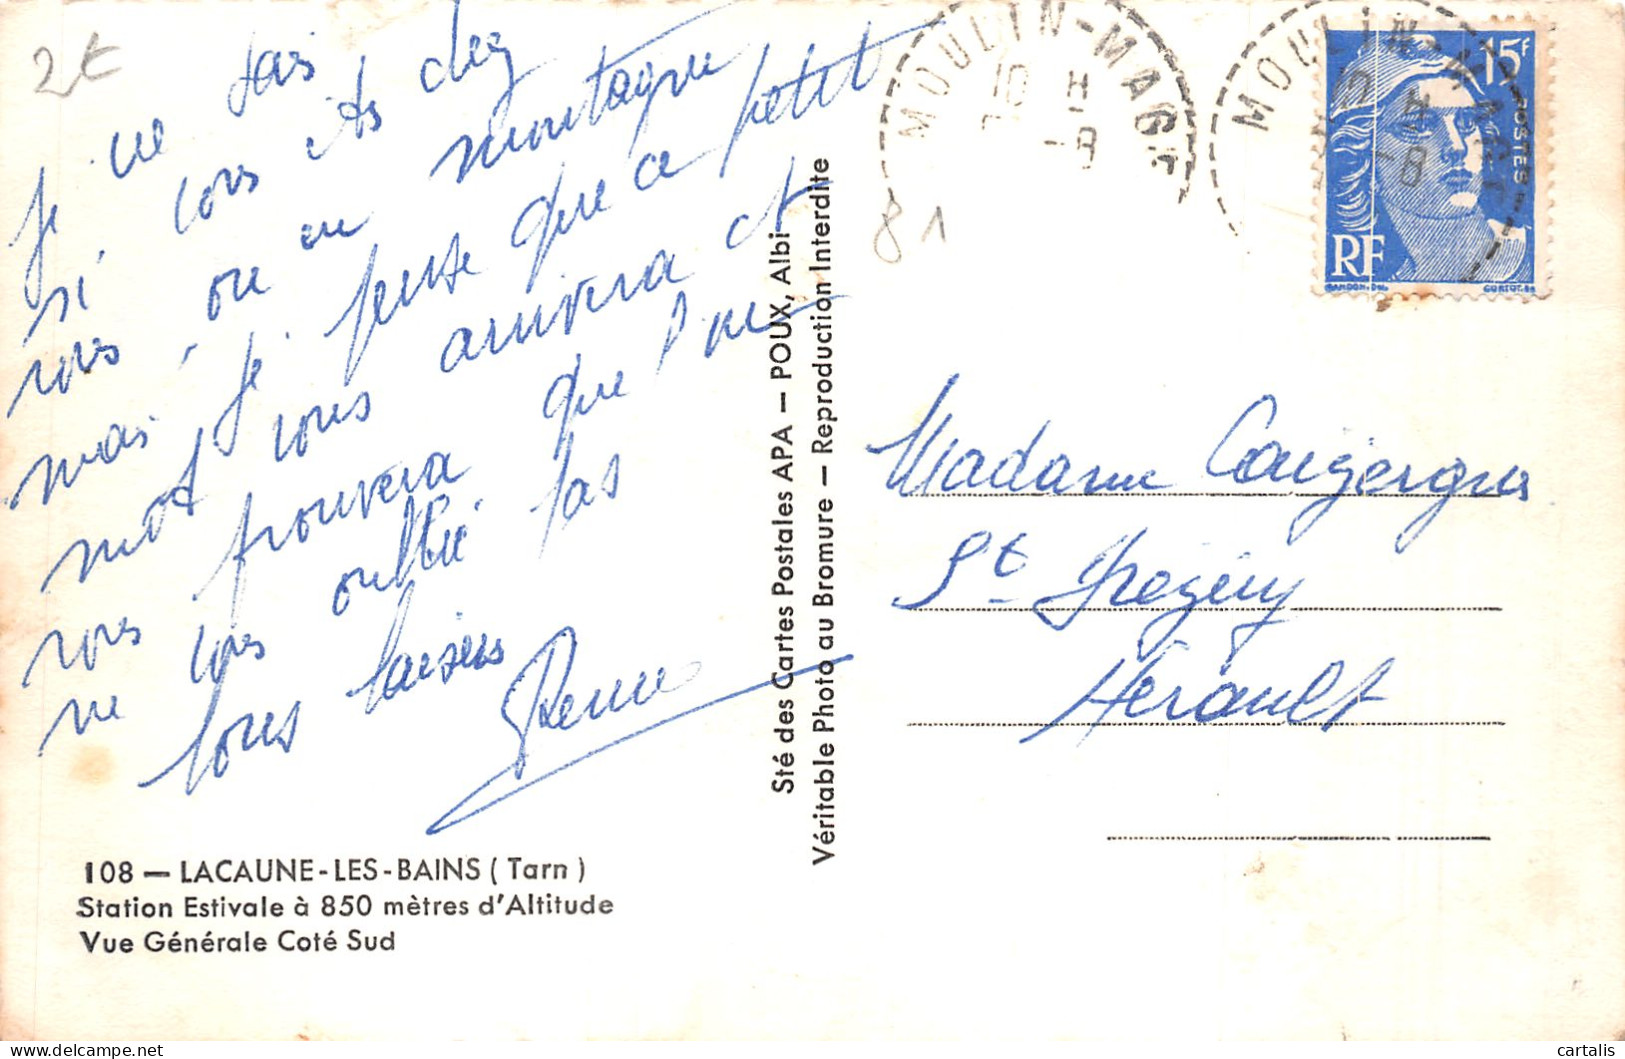 2€
je ne sais
si vous êtes chez
vous ou en montagne
mais je pense que ce petit
mot vous arrivera et
vous prouvera que l'on
ne vous oublie pas
bons baisers
108 — LACAUNE-LES-BAINS (Tarn)
Station Estivale à 850 mètres d'Altitude
Vue Générale Coté Sud
Sté des Cartes Postales APA — POUX, Albi
Véritable Photo au Bromure — Reproduction Interdite
MOULIN-MAGE
10 H
-8
MOULIN-MAGE
10 H
-8
81
15F
POSTES
RF
GANDON. DEL.
Madame Caizergues
St
Hérault
cartalis